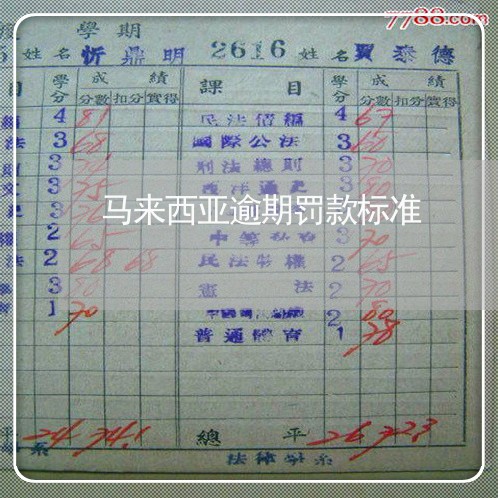 7788.com
學期
姓名 忻鼎明 2616 姓名 賈泰德
目 學分 成績 課目 學分 成績
分數 扣分 實得 分數 扣分 實得
4 81 民法債編 4 67
法 3 68 國際公法 3 60
3 刑法總則 3 70
3 75 西洋通史 3 80
马来西亚逾期罚款标准
2 65 3 70
法 2 68 68 民法物權 2 65
3 80 憲法 2 70
1 70 2 80
普通體育 1 78
平 24 74.1 總平 26 72.3
系 法律學系